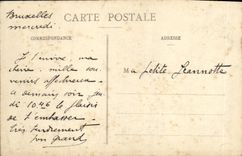 Bruxelles
mercredi
CARTE POSTALE
CORRESPONDANCE
ADRESSE
Je t'envoie, ma
chérie mille sou
venirs affectueux
a demain soir
10.46 le plaisir
de t'embrasser
très tendrement
ton grand
Ma petite Jeannette